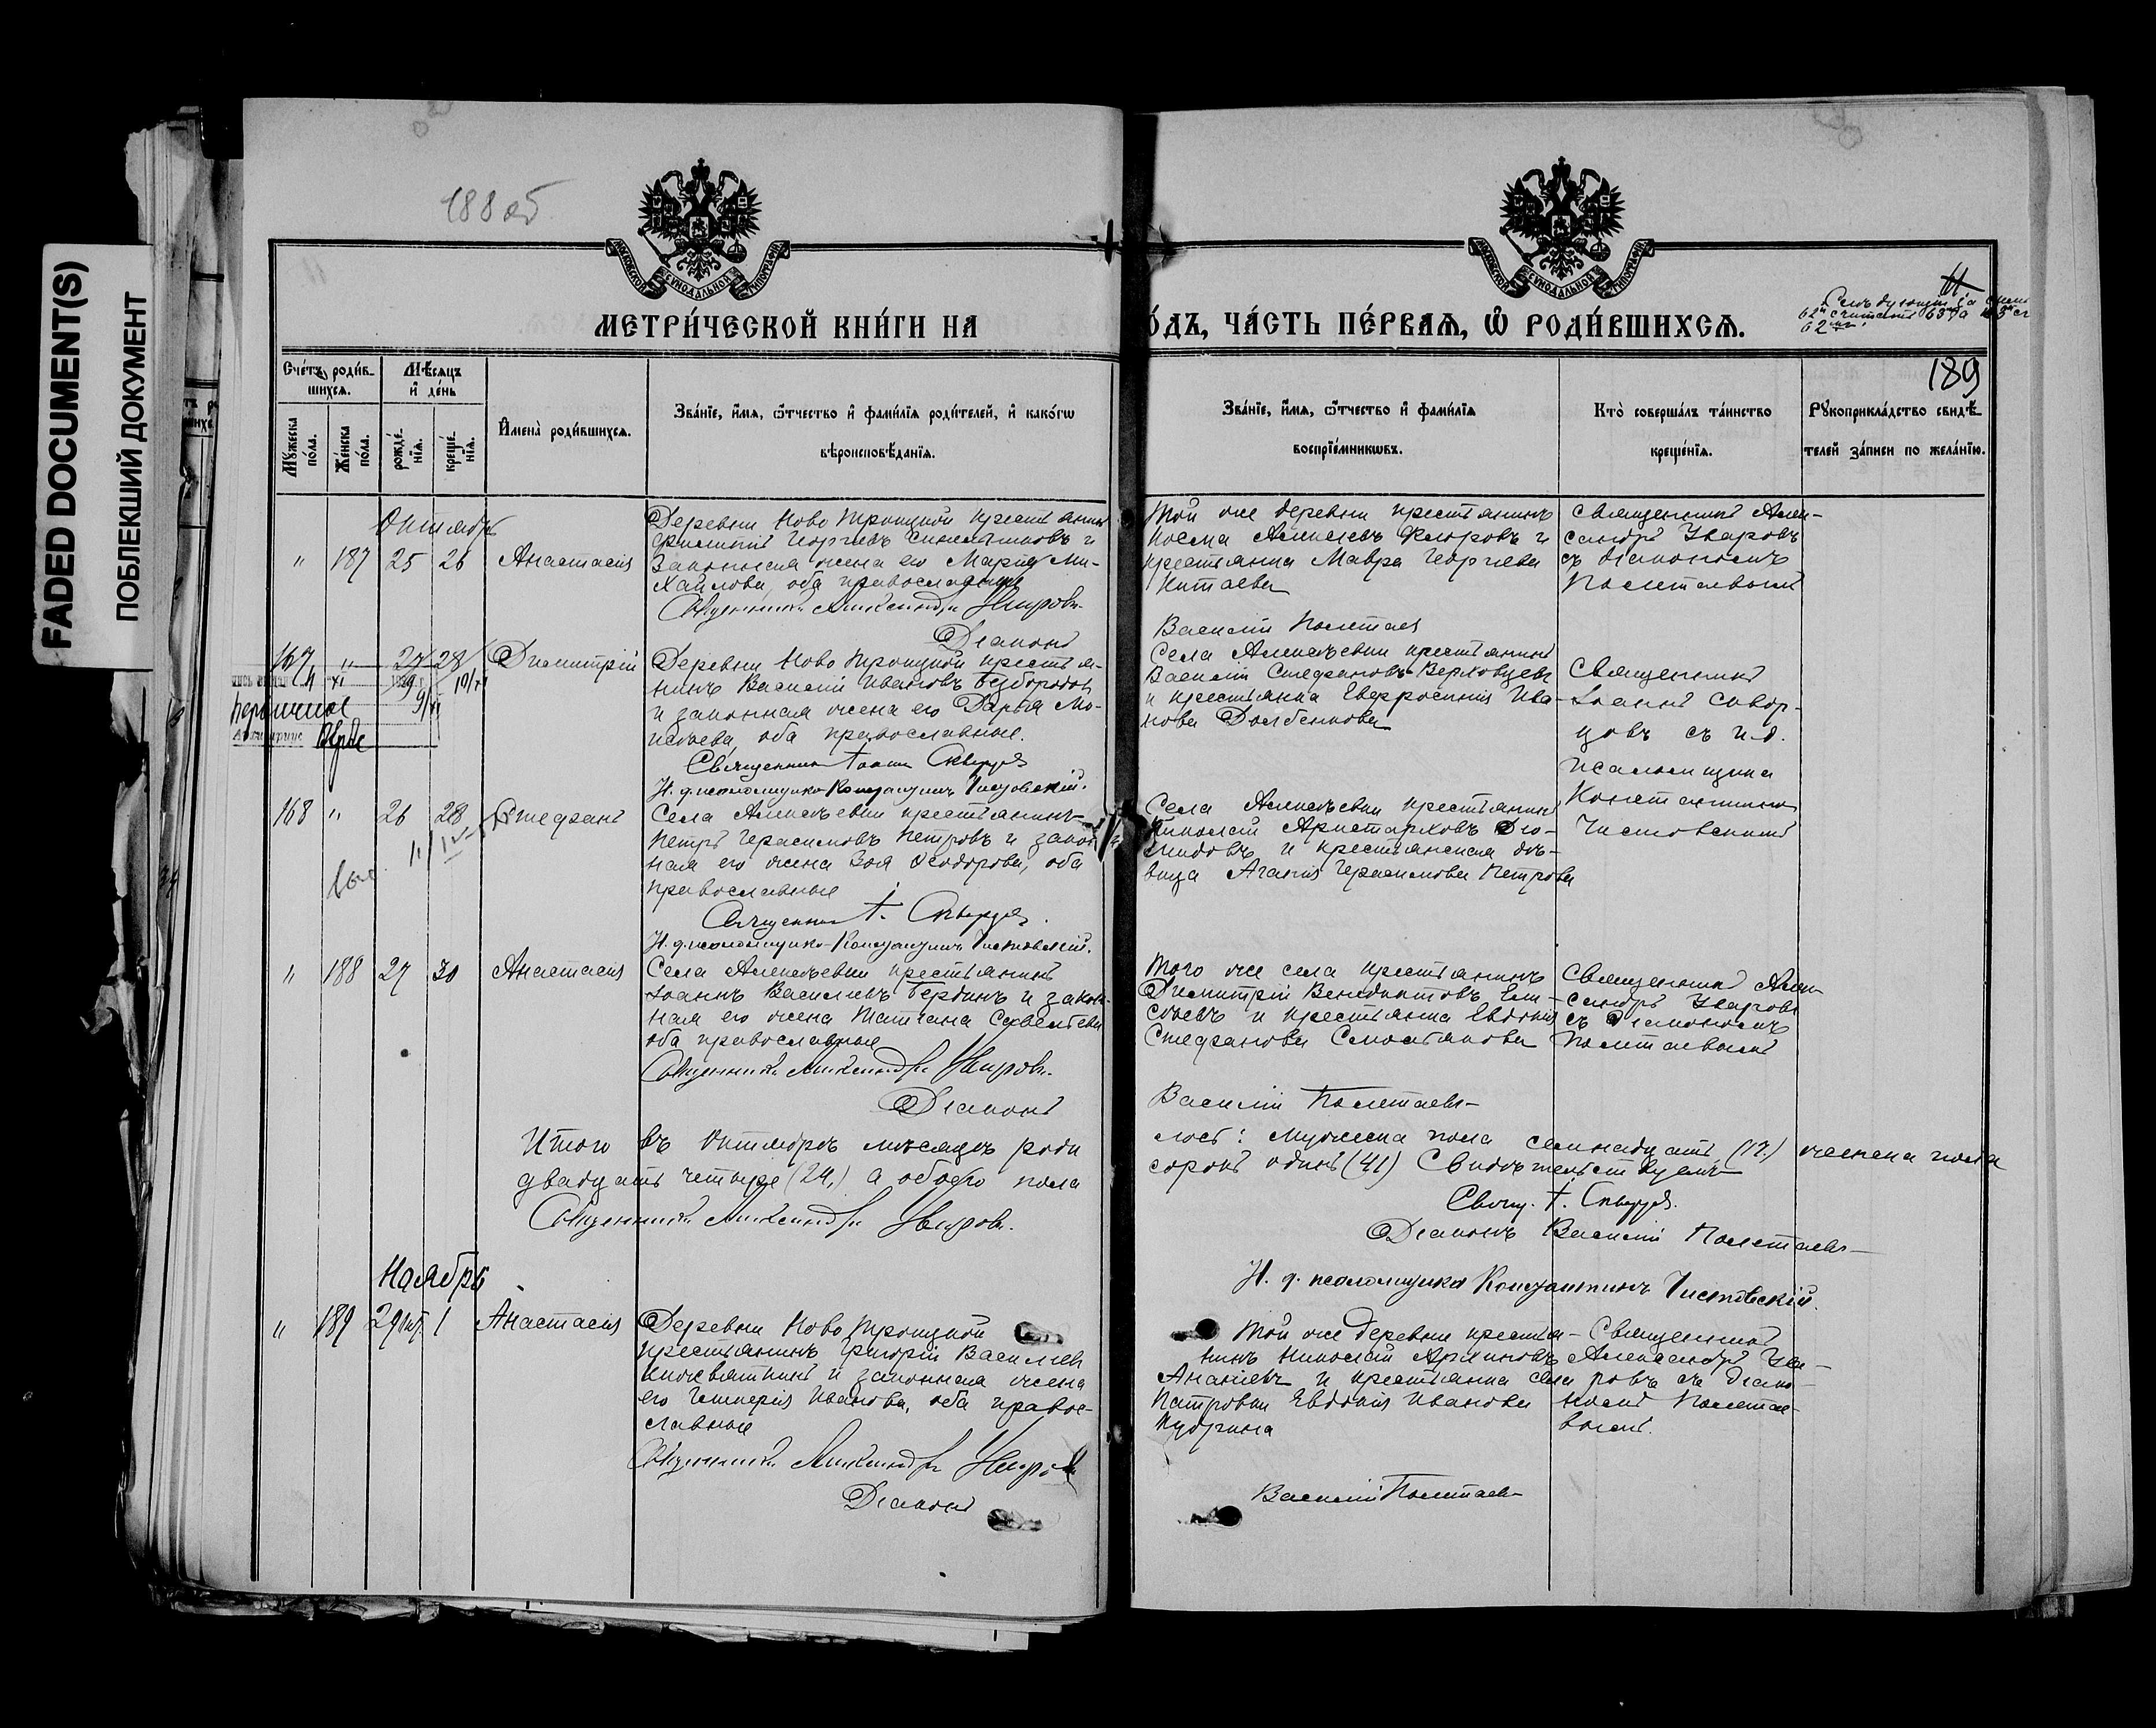 FADED DOCUMENT(S)
ПОБЛЕКШИЙ ДОКУМЕНТ
188 об
МЕТРИ́ЧЕСКОЙ КНИ́ГИ НА
О́ДЪ, ЧА́СТЬ ПЕ́РВАЯ, Ѿ РОДИ́ВШИХСЯ.
189
Сче́тъ роди́в-
шихся.
Мѣ́сяцъ
и҆ де́нь
Мꙋ́жеска
по́ла.
Же́нска
по́ла.
рожде́-
нїя.
креще́-
нїя.
И҆мена̀ роди́вшихся.
Зва́нїе, и҆́мя, ѻ҆́тчество и҆ фами́лїя роди́телей, и҆ како́гѡ
вѣроисповѣ́данїя.
Зва́нїе, и҆́мя, ѻ҆́тчество и҆ фами́лїя
воспрїе́мникѡвъ.
Кто̀ соверша́лъ та́инство
креще́нїя.
Рꙋкоприкла́дство свидѣ́-
телей за́писи по жела́нїю.
Октябрь
" 187 25 26 Анастасія
Деревни Ново Троицкой крестьянинъ
Филиппъ Георгіевъ Синельниковъ и
законная жена его Марія Ми-
хайлова, оба православные
Священникъ Александръ Уваровъ.
Діаконъ
Той же деревни крестьянинъ
Косма Алексѣевъ Флоровъ и
крестьянка Мавра Георгіева
Китаева
Василій Полетаевъ
Священникъ Алек-
сандръ Уваровъ
съ діакономъ
Полетаевымъ
167 " 27 28 Димитрій
Деревни Ново Троицкой крестья-
нинъ Василій Ивановъ Безбородовъ
и законная жена его Дарья Мо-
исеева, оба православные.
Священникъ Іоаннъ Скворцовъ
И. д. псаломщика Константинъ Чистовскій.
Села Алексѣевки крестьянинъ
Василій Стефановъ Верховцевъ
и крестьянка Евфросинія Ива-
нова Долбенкова
Священникъ
Іоаннъ Сквор-
цовъ съ и.д.
псаломщика
Константиномъ
Чистовскимъ
168 " 26 28 Стефанъ
Села Алексѣевки крестьянинъ
Петръ Герасимовъ Петровъ и закон-
ная его жена Зоя Ѳеодорова, оба
православные
Священникъ І. Скворцовъ.
И. д. псаломщика Константинъ Чистовскій.
Села Алексѣевки крестьянинъ
Николай Аристарховъ Дio-
мидовъ и крестьянская дѣ-
вица Агапія Герасимова Петрова
" 188 27 30 Анастасія
Села Алексѣевки крестьянинъ
Іоаннъ Василіевъ Бердинъ и закон-
ная его жена Татіана Савельева
оба православные
Священникъ Александръ Уваровъ.
Діаконъ
Того же села крестьянинъ
Димитрій Венедиктовъ Ели-
сѣевъ и крестьянка Евдокія
Стефанова
Василій Полетаевъ
Священникъ Алек-
сандръ Уваровъ
съ Діакономъ
Полетаевымъ
Итого въ Октябрѣ мѣсяцѣ роди
лось: мужеска пола семнадцать (17) женска пола
двадцать четыре (24,) а обоего пола
сорокъ одинъ (41) Свидѣтельствуемъ
Священникъ Александръ Уваровъ.
Свящ. І. Скворцовъ.
Діаконъ Василій Полетаевъ
И. д. псаломщика Константинъ Чистовскій.
Ноябрь
" 189 29 окт. 1 Анастасія
Деревни Ново Троицкой
крестьянинъ Григорій Василіевъ
и законная жена
его Гликерія Иванова, оба право-
славные
Священникъ Александръ Уваровъ
Діаконъ
Той же деревни крестья-
нинъ Николай Архиповъ
Ананіевъ и крестьянка села
Патровки Евдокія Иванова
Василій Полетаевъ
Священникъ
Александръ Ува-
ровъ съ діако-
номъ Полетае-
вымъ.